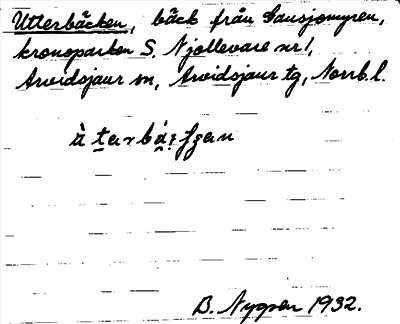 Utterbäcken, bäck från Sausjomyren,
kronoparken S. Njallevare nr 1,
Arvidsjaur sn, Arvidsjaur tg, Norrb. l.
B. Nygren 1932.